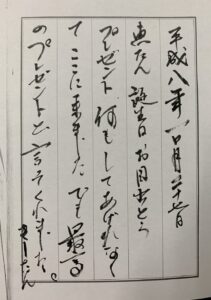 平成八年 八月二十七日
恵たん 誕生日 お目出とう
プレゼント 何もしてあげれなく
て ここに来ました でも 最高
のプレゼントと 言ってくれました。